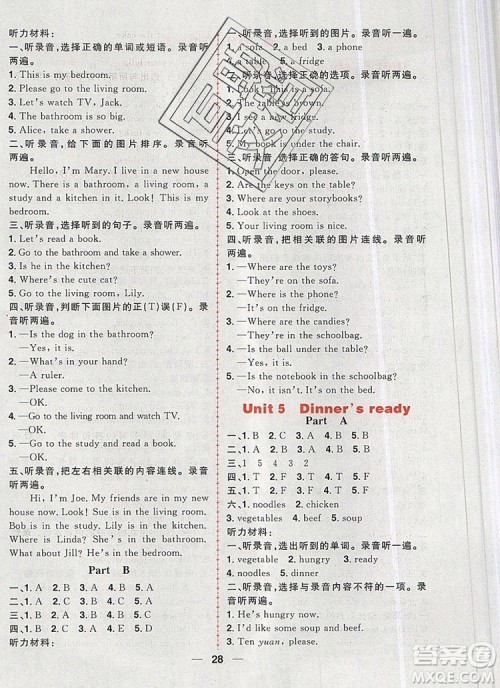 听力材料:
一、听录音,选择正确的单词或短语。录音
听两遍。
1. This is my bedroom.
2. Please go to the living room.
3. Let's watch TV, Jack.
4. The bathroom is so big.
5. Alice, take a shower.
二、听录音,给下面的图片排序。录音听
两遍。
Hello, I'm Mary. I live in a new house
now. There is a bathroom, a living room, a
study and a kitchen in it. Look! This is my
bedroom.
三、听录音,选择听到的句子。录音听两遍。
1. Let's read a book.
2. Go to the bathroom and take a shower.
3. Is she in the kitchen?
4. Where's the cute cat?
5. Go to the living room, Lily.
四、听录音,判断下面图片的正(T)误(F)。录
音听两遍。
1. —Is the dog in the bathroom?
—Yes, it is.
2. —What's in your hand?
—A ruler.
3. —Please come to the kitchen.
—OK.
4. —Go to the living room and watch TV.
—OK.
5. —Please go to the study and read a book.
—OK.
五、听录音,把左右相关联的内容连线。录音
听两遍。
Hi, I'm Joe. My friends are in my new
house now. Look! Sue is in the living room.
Bob is in the study. Lily is in the bathroom.
Where is Linda? She's in the kitchen.
What about Jill? He is in the bedroom.
Part B
一、1. A 2. A 3. A 4. B 5. B
二、1. A 2. C 3. B 4. A 5. C
三、1. A 2. B 3. B 4. A 5. B
听力材料:
一、听录音,选择听到的图片。录音听两遍。
1. a sofa 2. a bed 3. a phone
4. a table 5. a fridge
二、听录音,选择正确的选项。录音听两遍。
1. Look! This is a sofa.
2. The table is brown.
3. I see a new fridge.
4. Where are my keys?
5. Your phone is on the bed.
三、听录音,选择正确的答句。录音听两遍。
1. Open the door, please.
2. Are the keys on the table?
3. Where are your storybooks?
4. Look at the shoes.
5. Your living room is nice.
四、听录音,把相关联的图片连线。录音听
两遍。
1. —Where are the toys?
—They're on the sofa.
2. —Where is the phone?
—It's on the fridge.
3. —Where are the candies?
—They're in the schoolbag.
4. —Is the ball under the table?
—Yes, it is.
5. —Is the notebook in the schoolbag?
—No, it isn't. It's on the bed.
Unit 5 Dinner's ready
Part A
一、1. B 2. C 3. A 4. B 5. A
二、1. B 2. A 3. C 4. A 5. B
三、1 5 4 3 2
四、1. T 2. F 3. F 4. T 5. F
五、1. T 2. F 3. T 4. T 5. F
六、1. noodles 2. chicken 3. soup
4. vegetables 5. beef
听力材料:
一、听录音,选出听到的单词。录音听两遍。
1. vegetable 2. knife 3. hungry
4. noodles 5. dinner
二、听录音,选择与录音内容不符的一项。录音
听两遍。
1. He's hungry now.
2. I'd like some beef and vegetables.
3. Ten yuan, please!
28
答案圈
MXQE.COM